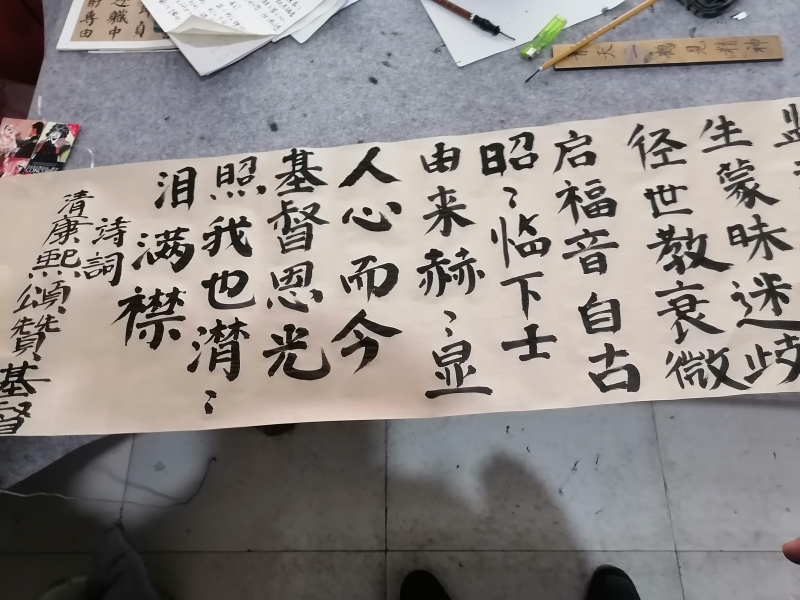 生蒙昧迷歧
径世教衰微
启福音自古
昭〻临下士
由来赫〻显
人心而今
基督恩光
照我也潸〻
泪满襟
诗詞
清康熙頌贊基督